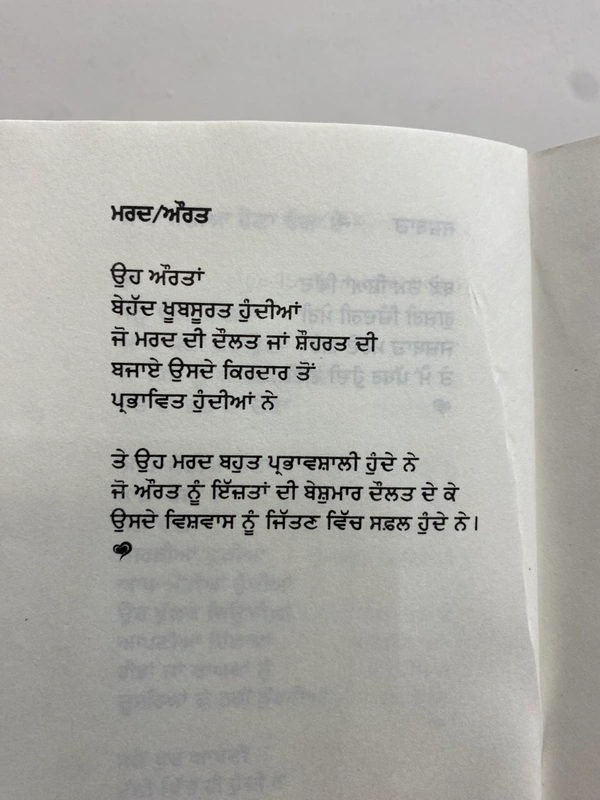 ਮਰਦ/ਔਰਤ
ਉਹ ਔਰਤਾਂ
ਬੇਹੱਦ ਖ਼ੂਬਸੂਰਤ ਹੁੰਦੀਆਂ
ਜੋ ਮਰਦ ਦੀ ਦੌਲਤ ਜਾਂ ਸ਼ੌਹਰਤ ਦੀ
ਬਜਾਏ ਉਸਦੇ ਕਿਰਦਾਰ ਤੋਂ
ਪ੍ਰਭਾਵਿਤ ਹੁੰਦੀਆਂ ਨੇ
ਤੇ ਉਹ ਮਰਦ ਬਹੁਤ ਪ੍ਰਭਾਵਸ਼ਾਲੀ ਹੁੰਦੇ ਨੇ
ਜੋ ਔਰਤ ਨੂੰ ਇੱਜ਼ਤਾਂ ਦੀ ਬੇਸ਼ੁਮਾਰ ਦੌਲਤ ਦੇ ਕੇ
ਉਸਦੇ ਵਿਸ਼ਵਾਸ ਨੂੰ ਜਿੱਤਣ ਵਿੱਚ ਸਫ਼ਲ ਹੁੰਦੇ ਨੇ।